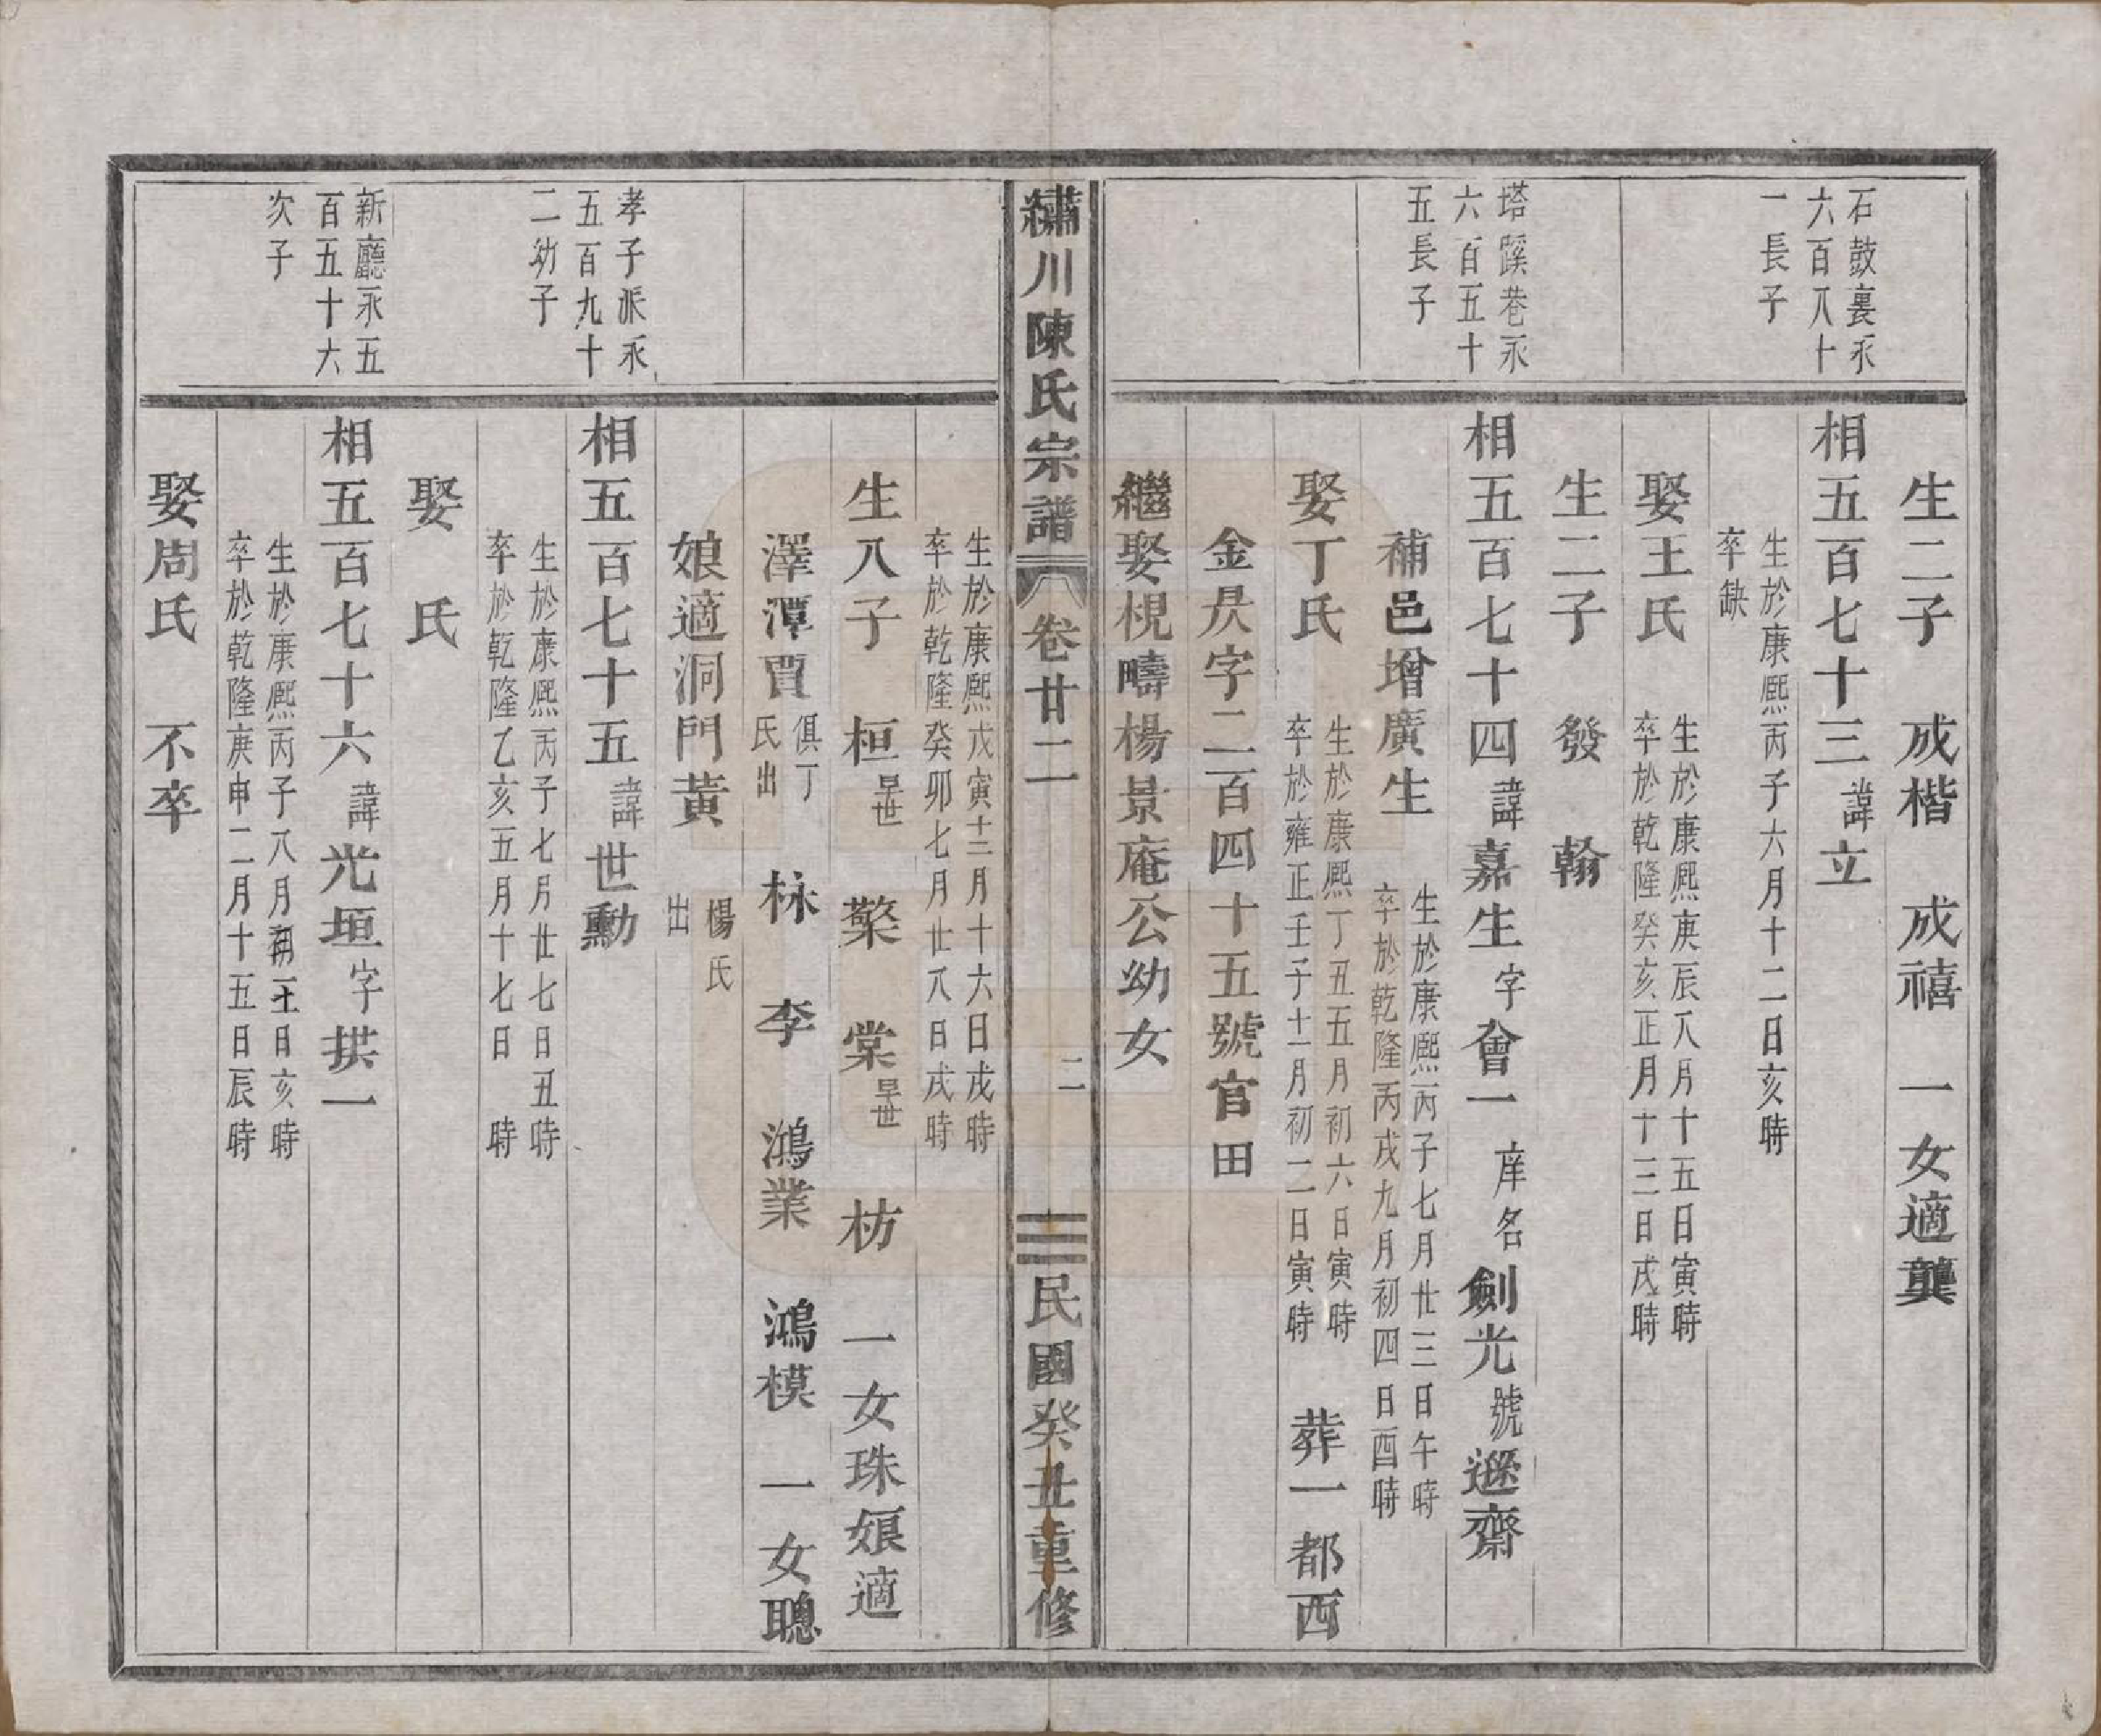 石鼓裏永
六百八十
一長子
塔蹊巷永
六百五十
五長子
生二子　成楷　成禧　一女適龔
相五百七十三諱立
生於康熙丙子六月十二日亥時
卒缺
娶王氏
生於康熙庚辰八月十五日寅時
卒於乾隆癸亥正月十三日戌時
生二子　發　翰
相五百七十四諱嘉生字會一庠名劍光號遯齋
補邑增廣生
生於康熙丙子七月廿三日午時
卒於乾隆丙戌九月初四日酉時
娶丁氏
生於康熙丁丑五月初六日寅時
卒於雍正壬子十一月初二日寅時
葬一都西
金昃字二百四十五號官田
繼娶梘疇楊景庵公幼女
繡川陳氏宗譜　卷廿二　二　民國癸丑重修
孝子派永
五百九十
二幼子
新廳永五
百五十六
次子
生於康熙戊寅十二月十六日戌時
卒於乾隆癸卯七月廿八日戌時
生八子　桓早世　檠　棠早世　枋　一女珠娘適
澤潭賈俱丁氏出　栐　李　鴻業　鴻模　一女聰
娘適洞門黃楊氏出
相五百七十五諱世勳
生於康熙丙子七月廿七日丑時
卒於乾隆乙亥五月十七日　時
娶　氏
相五百七十六諱光垣字拱一
生於康熙丙子八月初十一日亥時
卒於乾隆庚申二月十五日辰時
娶周氏　不卒